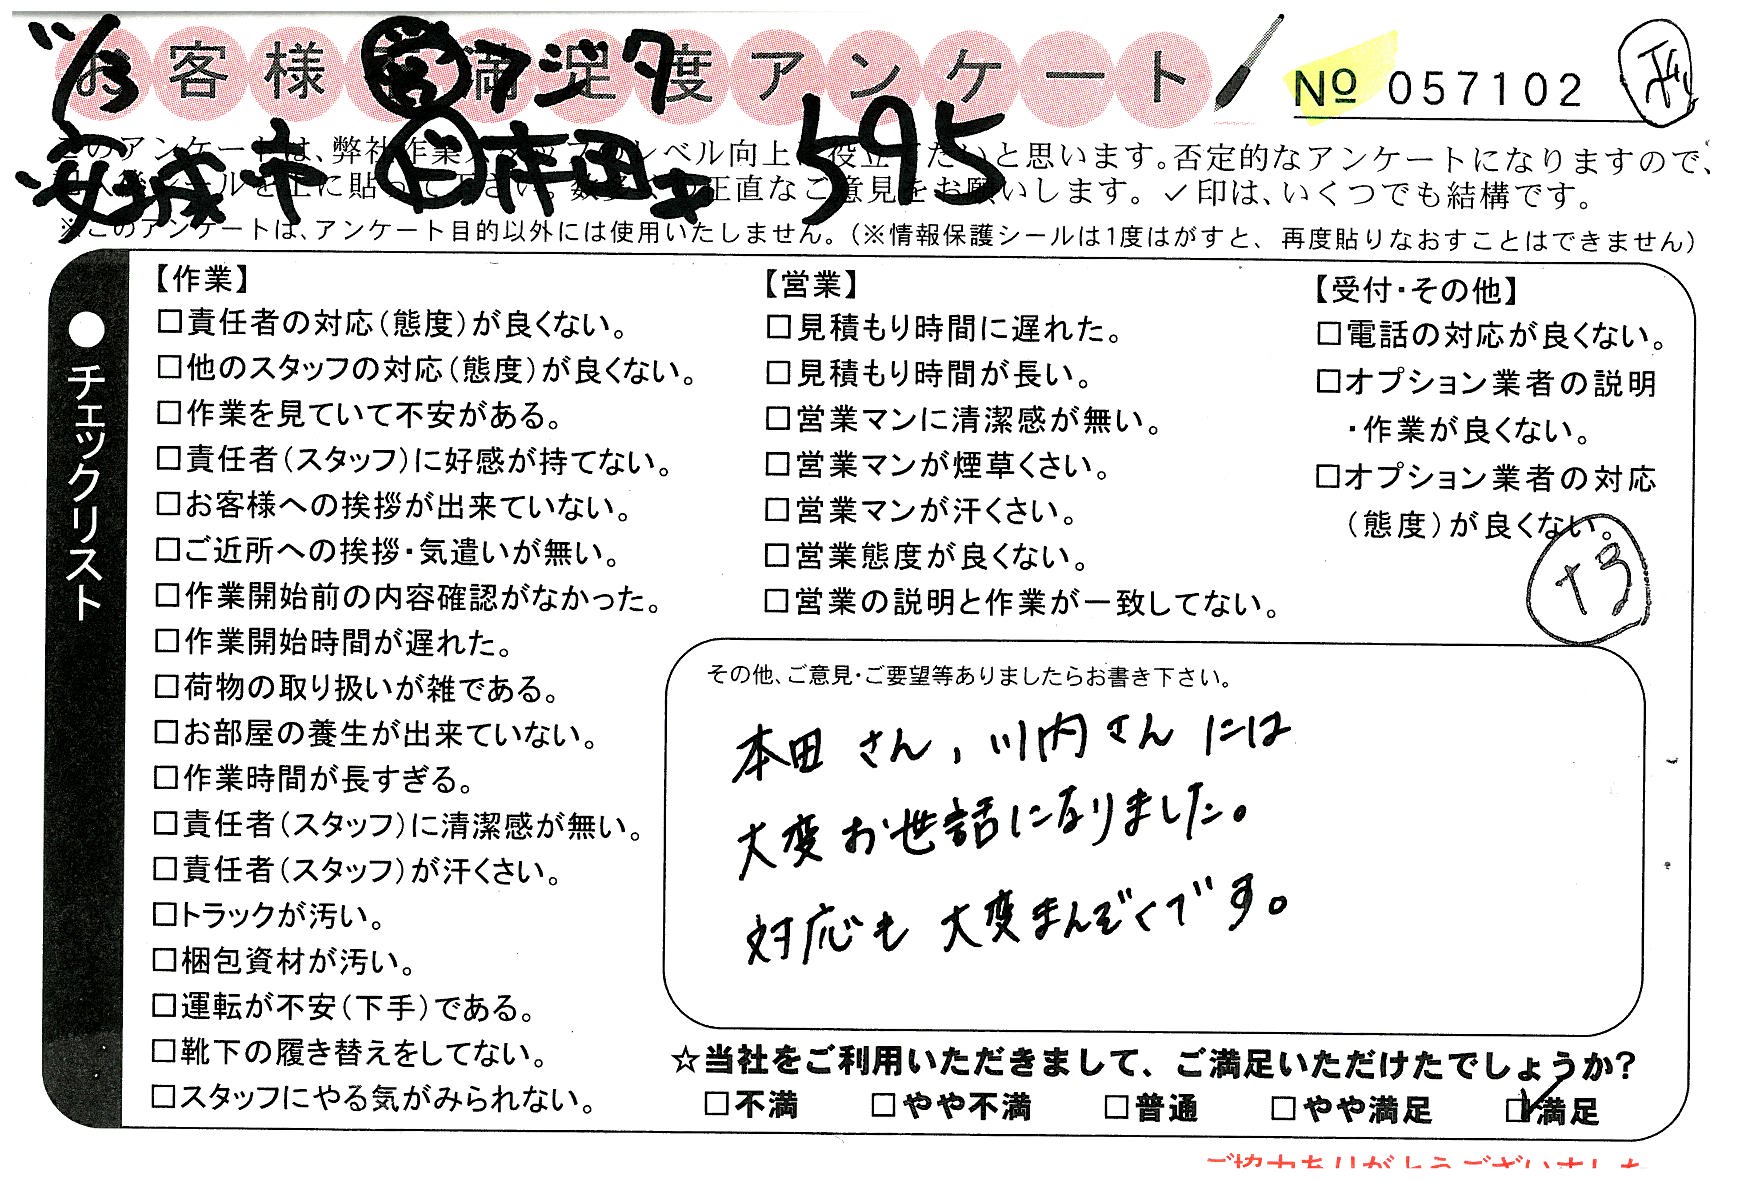 11/3
お客様 満足度アンケート
営 フジタ
№ 057102
安城市 上 本田 595
このアンケートは、弊社作業スタッフのレベル向上に役立てたいと思います。否定的なアンケートになりますので、
記入後シールを上に貼って下さい。数多くの正直なご意見をお願いします。✓印は、いくつでも結構です。
※このアンケートは、アンケート目的以外には使用いたしません。（※情報保護シールは1度はがすと、再度貼りなおすことはできません）
●チェックリスト
【作業】
□責任者の対応（態度）が良くない。
□他のスタッフの対応（態度）が良くない。
□作業を見ていて不安がある。
□責任者（スタッフ）に好感が持てない。
□お客様への挨拶が出来ていない。
□ご近所への挨拶・気遣いが無い。
□作業開始前の内容確認がなかった。
□作業開始時間が遅れた。
□荷物の取り扱いが雑である。
□お部屋の養生が出来ていない。
□作業時間が長すぎる。
□責任者（スタッフ）に清潔感が無い。
□責任者（スタッフ）が汗くさい。
□トラックが汚い。
□梱包資材が汚い。
□運転が不安（下手）である。
□靴下の履き替えをしてない。
□スタッフにやる気がみられない。
【営業】
□見積もり時間に遅れた。
□見積もり時間が長い。
□営業マンに清潔感が無い。
□営業マンが煙草くさい。
□営業マンが汗くさい。
□営業態度が良くない。
□営業の説明と作業が一致してない。
【受付・その他】
□電話の対応が良くない。
□オプション業者の説明
・作業が良くない。
□オプション業者の対応
（態度）が良くない。
+3
その他、ご意見・ご要望等ありましたらお書き下さい。
本田さん、川内さんには
大変お世話になりました。
対応も大変まんぞくです。
☆当社をご利用いただきまして、ご満足いただけたでしょうか？
□不満 □やや不満 □普通 □やや満足 ☑満足
ご協力ありがとうございました